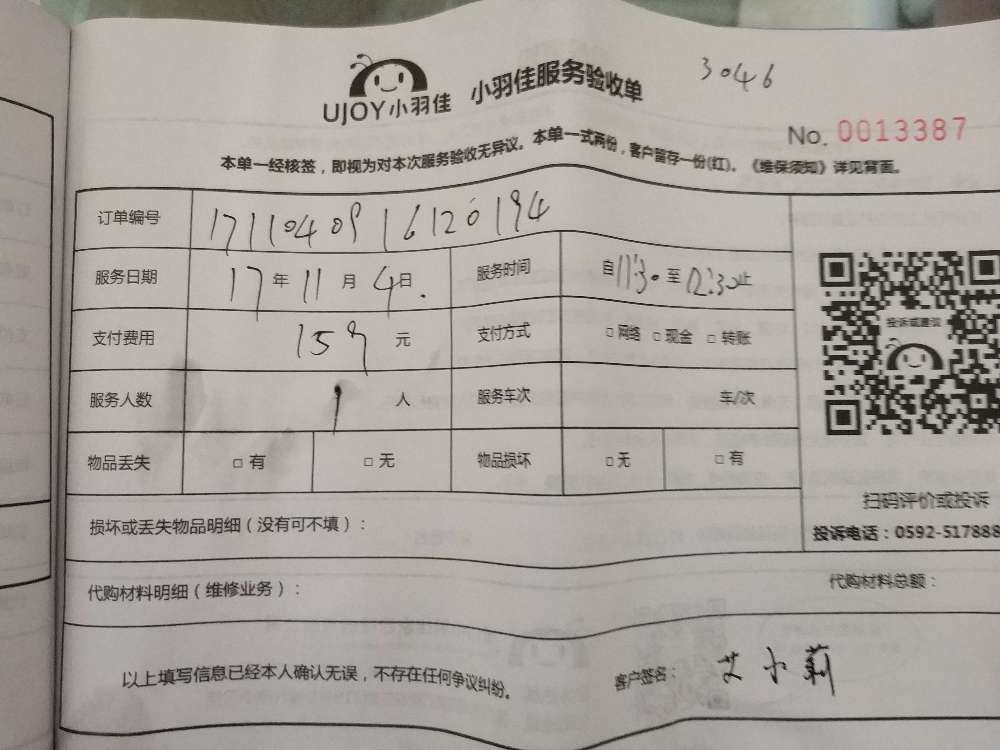 3046
UJOY小羽佳 小羽佳服务验收单
No. 0013387
本单一经核签，即视为对本次服务验收无异议。本单一式两份，客户留存一份(红)。《维保须知》详见背面。
订单编号 1711040916120194
服务日期 17年11月4日. 服务时间 自11:30至12:30止
支付费用 159元 支付方式 □网络 □现金 □转账
投诉或建议
服务人数 1人 服务车次 车/次
物品丢失 □有 □无 物品损坏 □无 □有
扫码评价或投诉
损坏或丢失物品明细（没有可不填）：
投诉电话：0592-517888
代购材料明细（维修业务）： 代购材料总额：
以上填写信息已经本人确认无误，不存在任何争议纠纷。 客户签名： 艾小莉